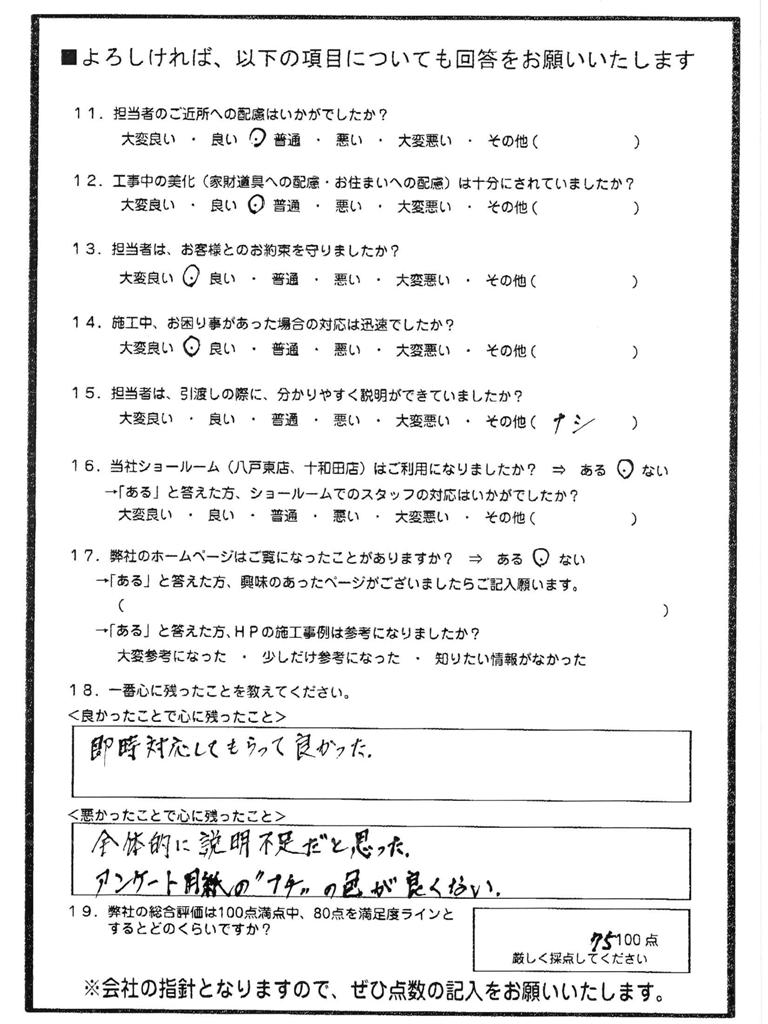 ■よろしければ、以下の項目についても回答をお願いいたします
11．担当者のご近所への配慮はいかがでしたか？
大変良い ・ 良い ・ 普通 ・ 悪い ・ 大変悪い ・ その他（ ）
12．工事中の美化（家財道具への配慮・お住まいへの配慮）は十分にされていましたか？
大変良い ・ 良い ・ 普通 ・ 悪い ・ 大変悪い ・ その他（ ）
13．担当者は、お客様とのお約束を守りましたか？
大変良い ・ 良い ・ 普通 ・ 悪い ・ 大変悪い ・ その他（ ）
14．施工中、お困り事があった場合の対応は迅速でしたか？
大変良い ・ 良い ・ 普通 ・ 悪い ・ 大変悪い ・ その他（ ）
15．担当者は、引渡しの際に、分かりやすく説明ができていましたか？
大変良い ・ 良い ・ 普通 ・ 悪い ・ 大変悪い ・ その他（ ナシ ）
16．当社ショールーム（八戸東店、十和田店）はご利用になりましたか？ ⇒ ある ・ ない
→「ある」と答えた方、ショールームでのスタッフの対応はいかがでしたか？
大変良い ・ 良い ・ 普通 ・ 悪い ・ 大変悪い ・ その他（ ）
17．弊社のホームページはご覧になったことがありますか？ ⇒ ある ・ ない
→「ある」と答えた方、興味のあったページがございましたらご記入願います。
（ ）
→「ある」と答えた方、ＨＰの施工事例は参考になりましたか？
大変参考になった ・ 少しだけ参考になった ・ 知りたい情報がなかった
18．一番心に残ったことを教えてください。
＜良かったことで心に残ったこと＞
即時対応してもらって良かった.
＜悪かったことで心に残ったこと＞
全体的に説明不足だと思った.
アンケート用紙の"フチ"の色が良くない.
19．弊社の総合評価は100点満点中、80点を満足度ラインと
するとどのくらいですか？
75 100 点
厳しく採点してください
※会社の指針となりますので、ぜひ点数の記入をお願いいたします。